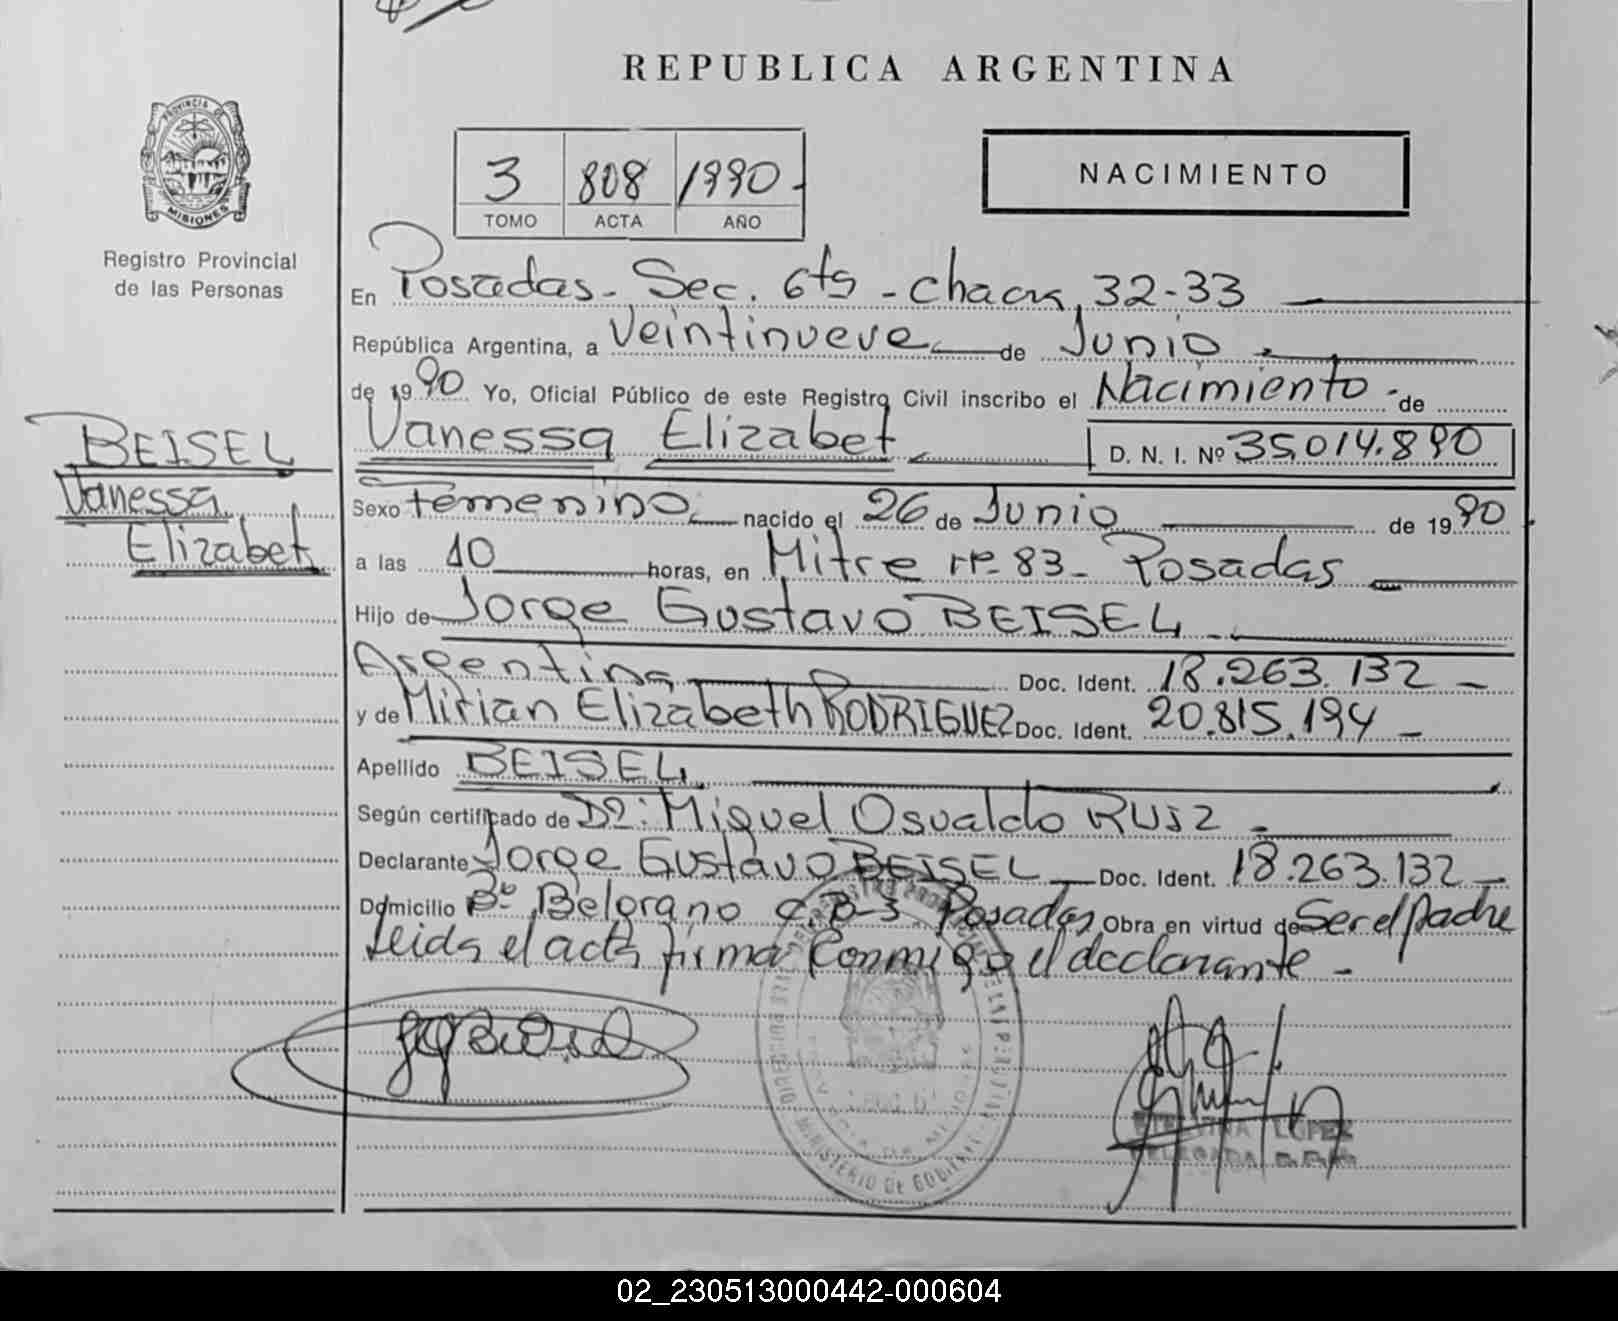 REPUBLICA ARGENTINA
PROVINCIA DE
MISIONES
Registro Provincial
de las Personas
3 808 1990
TOMO ACTA AÑO
NACIMIENTO
En Posadas - Sec. 6ta - Chacra 32-33
República Argentina, a Veintinueve de Junio
de 1990 Yo, Oficial Público de este Registro Civil inscribo el Nacimiento de
Vanessa Elizabet D. N. I. Nº 35.014.890
BEISEL
Vanessa
Elizabet
Sexo femenino nacido el 26 de Junio de 1990
a las 10 horas, en Mitre nº 83 - Posadas
Hijo de Jorge Gustavo BEISEL
Argentina Doc. Ident. 18.263.132
y de Mirian Elizabeth RODRIGUEZ Doc. Ident. 20.815.194
Apellido BEISEL
Según certificado de Dº: Miguel Osvaldo RUIZ
Declarante Jorge Gustavo BEISEL Doc. Ident. 18.263.132
Domicilio Bº Belgrano C.B-3 Posadas Obra en virtud de Ser el padre
Leida el acta firma Conmigo el declarante -
MINISTERIO DE GOBIERNO
LOPEZ
DELEGADA
02_230513000442-000604